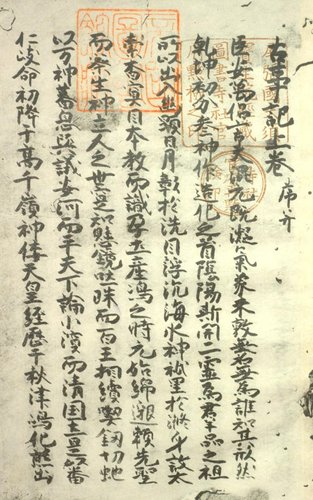 古事記上卷 序并
臣安萬侶言夫混元既凝氣象未效無名無為誰知其形然
乾坤初分參神作造化之首陰陽斯開二靈為群品之祖
所以出入幽顯日月彰於洗目浮沉海水神祇呈於滌身故太
素杳冥因本教而識孕土産嶋之時元始綿邈頼先聖
而察生神立人之世寔知懸鏡吐珠而百王相續喫釼切虵
以万神蕃息與議安河而平天下論小濱而清国土是以番
仁岐命初降于高千嶺神倭天皇經歷于秋津嶋化熊出